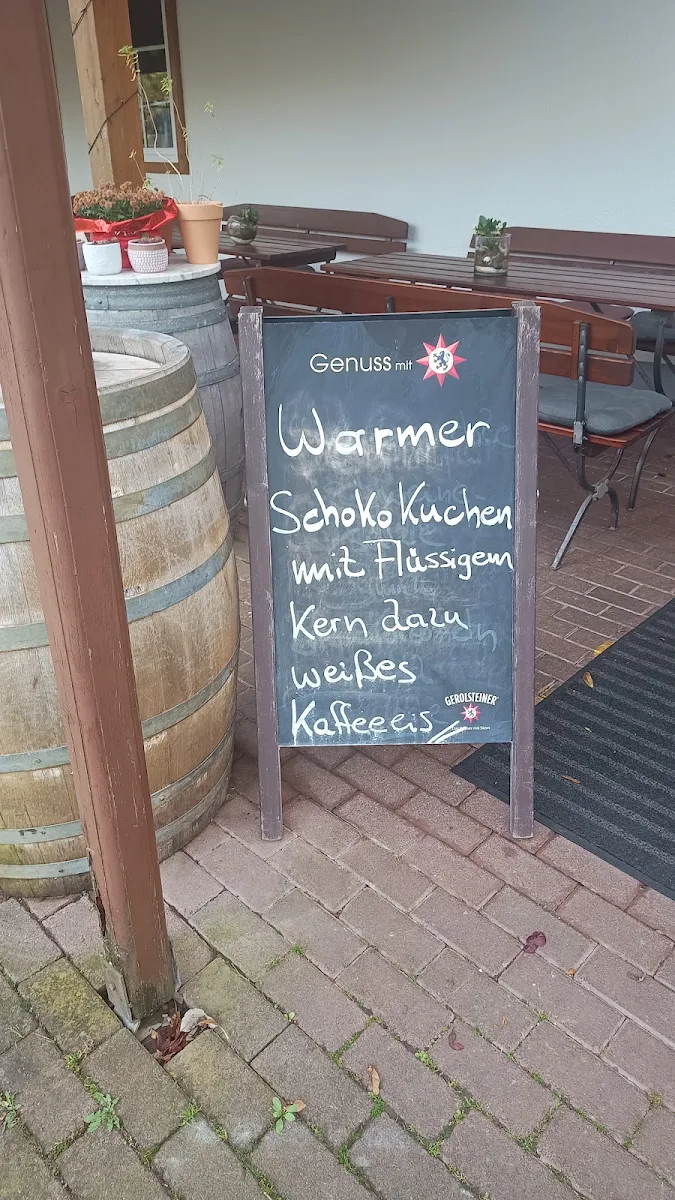 Genuss mit
Warmer
Schoko Kuchen
mit Flüssigem
Kern dazu
weißes
Kaffeeeis
GEROLSTEINER